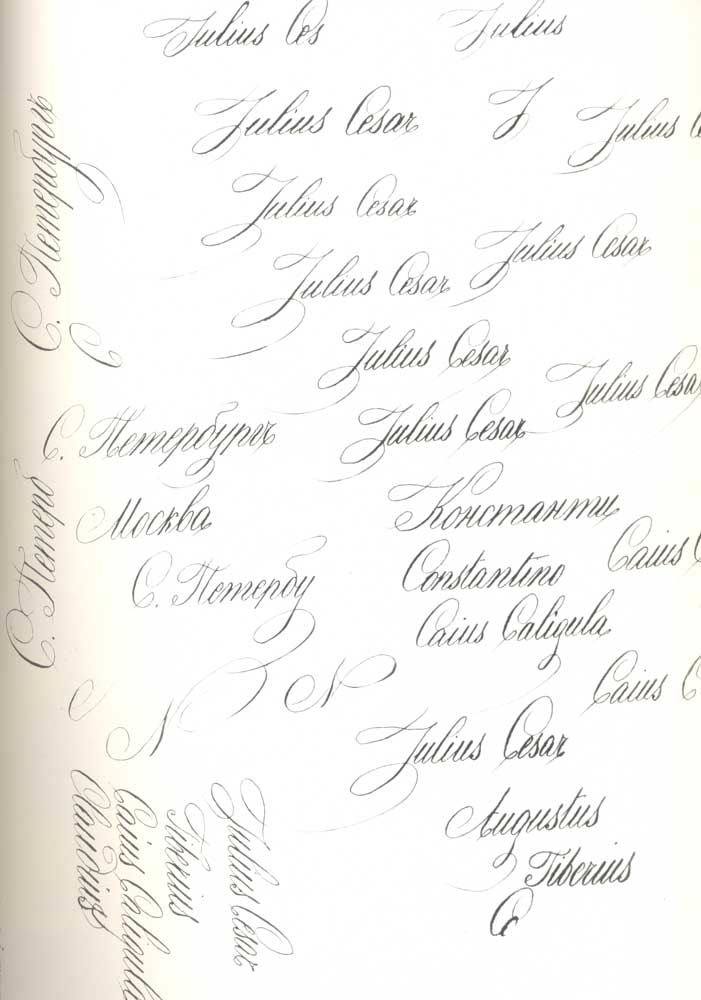 Julius Ces
Julius
Julius Cesar
J
Julius C
Julius Cesar
Julius Cesar
Julius Cesar
Julius Cesar
Julius Cesa
Julius Cesar
С. Петербургъ
С
С. Петербургъ
Москва
Константи
С. Петерб
С. Петербу
Constantino
Caius C
Caius Caligula
Caius C
N
N
Julius Cesar
Augustus
Tiberius
Julius Cesar
Tiberius
Caius Caligula
Claudius
C